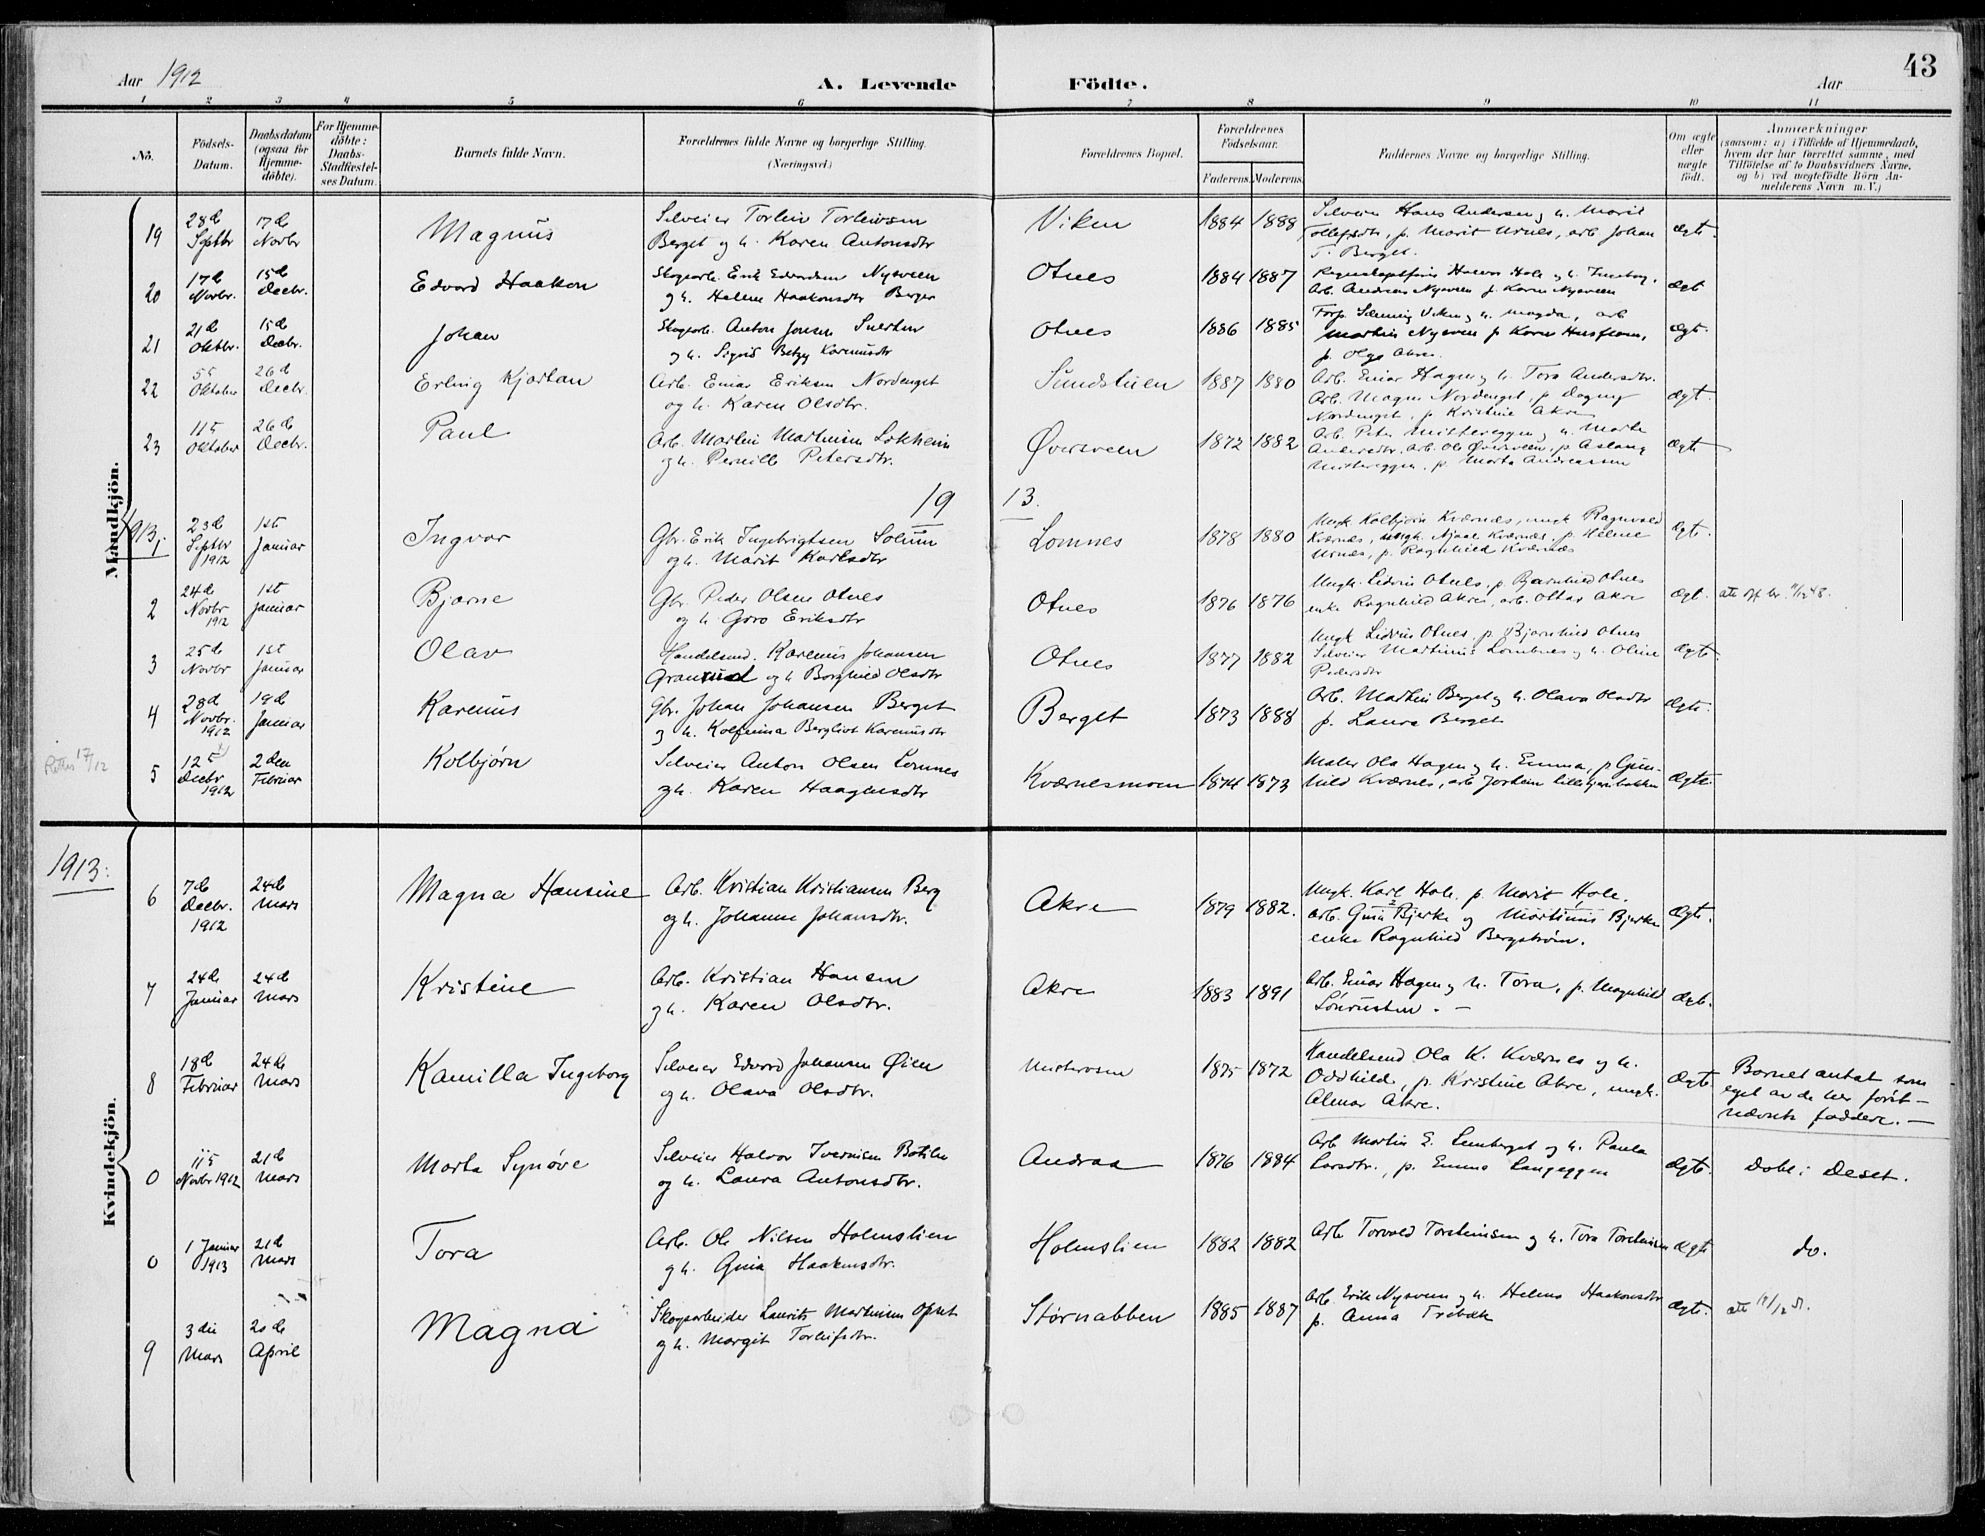 Aar 1912
A. Levende Födte.
Aar
43
1 2 3 4 5 6 7 8 9 10 11
No.
Födsels-Datum.
Daabsdatum (ogsaa for Hjemme-döbte).
For Hjemme-döbte: Daabs-Stadfæstel-ses Datum.
Barnets fulde Navn.
Forældrenes fulde Navne og borgerlige Stilling.
(Næringsvei.)
Forældrenes Bopæl.
Forældrenes Födselsaar.
Faderens. Moderens.
Faddernes Navne og borgerlige Stilling.
Om ægte eller uægte födt.
Anmærkninger
(saasom: a) i Tilfælde af Hjemmedaab,
hvem der har forrettet samme, med
Tilföielse af to Daabsvidners Navne,
og b) ved uægtefödte Börn An-
melderens Navn m. V.)
Mandkjön.
19 28d Septbr 17d Novbr Magnus Selveier Torleiv Torleivsen Berget og h. Karen Antonsdtr Viken 1884 1888 Selveier Hans Andersen og h. Marit
Tollefsdtr, p. Marit Urnes, arb Johan
T. Berget. ægte.
20 17d Novbr. 15d Decbr. Edvard Haakon Skogsarb. Erik Edvardsen Nysveen
og h. Helene Haakonsdtr Berger Otnes 1884 1887 Halvor Hole og h. Ingeborg,
Arb. Andreas Nysveen p Karen Nysveen ægt
21 21d Oktbr. 15d Decbr. Johan Skogsarb. Anton Jonsen
og h. Sigrid Betzy Karenusdtr Otnes 1886 1885 Viken og h. Magda, arb
Martin Nysveen p Karen
p. Olga Akre. ægt.
22 5t Oktober 26d Decbr. Erling Kjartan Arb. Einar Eriksen Nordenget
og h. Karen Olsdtr. Sundstuen 1887 1880 Arb. Einar Hagen og h. Tora Andersdtr.
Arb. Magne Nordenget, p Dagny
Nordenget, p Kristine Akre ægt.
23 11t Oktober 26d Decbr. Paul Arb. Martin Martinsen
og h. Pernille Petersdtr. Øversveen 1872 1882 Arb. Peter Mitteregger og h. Marte
Andersdtr, Arb. Ole Øversveen, p Aslaug
p. Marta Andreassen ægte
1913.
1913, 1 23d Septbr 1912 1st Januar Ingvar Gbr. Erik Ingebrigtsen Solum
og h. Marit Karlsdtr Lomnes 1878 1880 Ungk Kolbjørn Kværnes, ungk Ragnvald
Kværnes, ungk. Njaal Kværnes, p. Helene
Urnes, p. Ragnhild Kværnes ægte.
2 24d Novbr 1912 1st Januar Bjarne Gbr. Peder Olsen Otnes
og h. Goro Eriksdtr Otnes 1876 1876 Ungk. Lidvin Otnes, p. Bjarnhild Otnes
enke Ragnhild Akre, arb. Ottar Akre ægt.
3 25d Novbr 1st Januar Olav Handelsmd. Karenus Johansen
og h Borghild Olsdtr Otnes 1877 1882 Ungk Lidvin Otnes, p. Bjarnhild Otnes
Selveier Martinus Lomnes og h. Oline
Pedersdtr ægte.
4 28d Novbr. 1912 19d Januar Karenus Gbr. Johan Johansen Berget
og h. Kolfinna Bergliot Karenusdtr Berget 1873 1888 Arb. Martin Berget og h. Olava Olsdtr
p. Laura Berget ægte.
17/12
5 12t Decbr 1912 2den Februar Kolbjørn Selveier Anton Olsen Lomnes
og h. Karen Haagensdtr Kværnesmoen 1874 1873 Maler Ola Hagen og h. Emma, p Gun-
hild Kværnes, arb Jostein ægte.
Kvindekjön.
1913:
6 7d Decbr. 1912 24d Mars Magna Hansine Arb. Kristian Kristiansen Berg
og h. Johanne Johansdtr. Akre 1879 1882. Ungk. Karl Hole. p. Marit Hole.
Arb. Bjerke og Martinus Bjerke
enke Ragnhild Bergstrøm. ægte.
7 24d Januar 24d Mars Kristine Arb. Kristian Hansen
og h. Karen Olsdtr. Akre 1883 1891 Arb. Einar Hagen og h. Tora, p. Magnhild ægte.
8 18d Februar 24d Mars Kamilla Ingeborg Selveier Edvard Johansen Øien
og h. Olava Olsdtr. Mistervoen 1875 1872 Handelsmd Ola K. Kværnes og h.
Oddhild, p. Kristine Akre, ungk.
Almar Akre. ægte. Barnet antat som
eget av de her først-
nævnte faddere. –
0 11t Novbr 1912 21d Mars Marta Synøve Selveier Halvor Iversen
og h. Laura Antonsdtr. Andraa 1876 1884 Arb Martin E. Lunberget og h. Paula
Larsdtr., p. Emma Langeggen ægte. Døbt i Deset.
0 1 Januar 1913 21d Mars Tora Arb. Ole Nilsen Holmslien
og h. Gina Haakensdtr. Holmslien 1882 1882 Arb Torvald Torsteinsen og h. Tora Torsteinsen ægte do.
9 3die Mars 20de April Magna Skogsarbeider Laurits Martinsen Opset
og h. Margit Torleifsdtr. Størnabben 1885 1887 Arb. Erik Nysveen og h. Helene Haakonsdtr
p. Anna Trøbæk ægte.